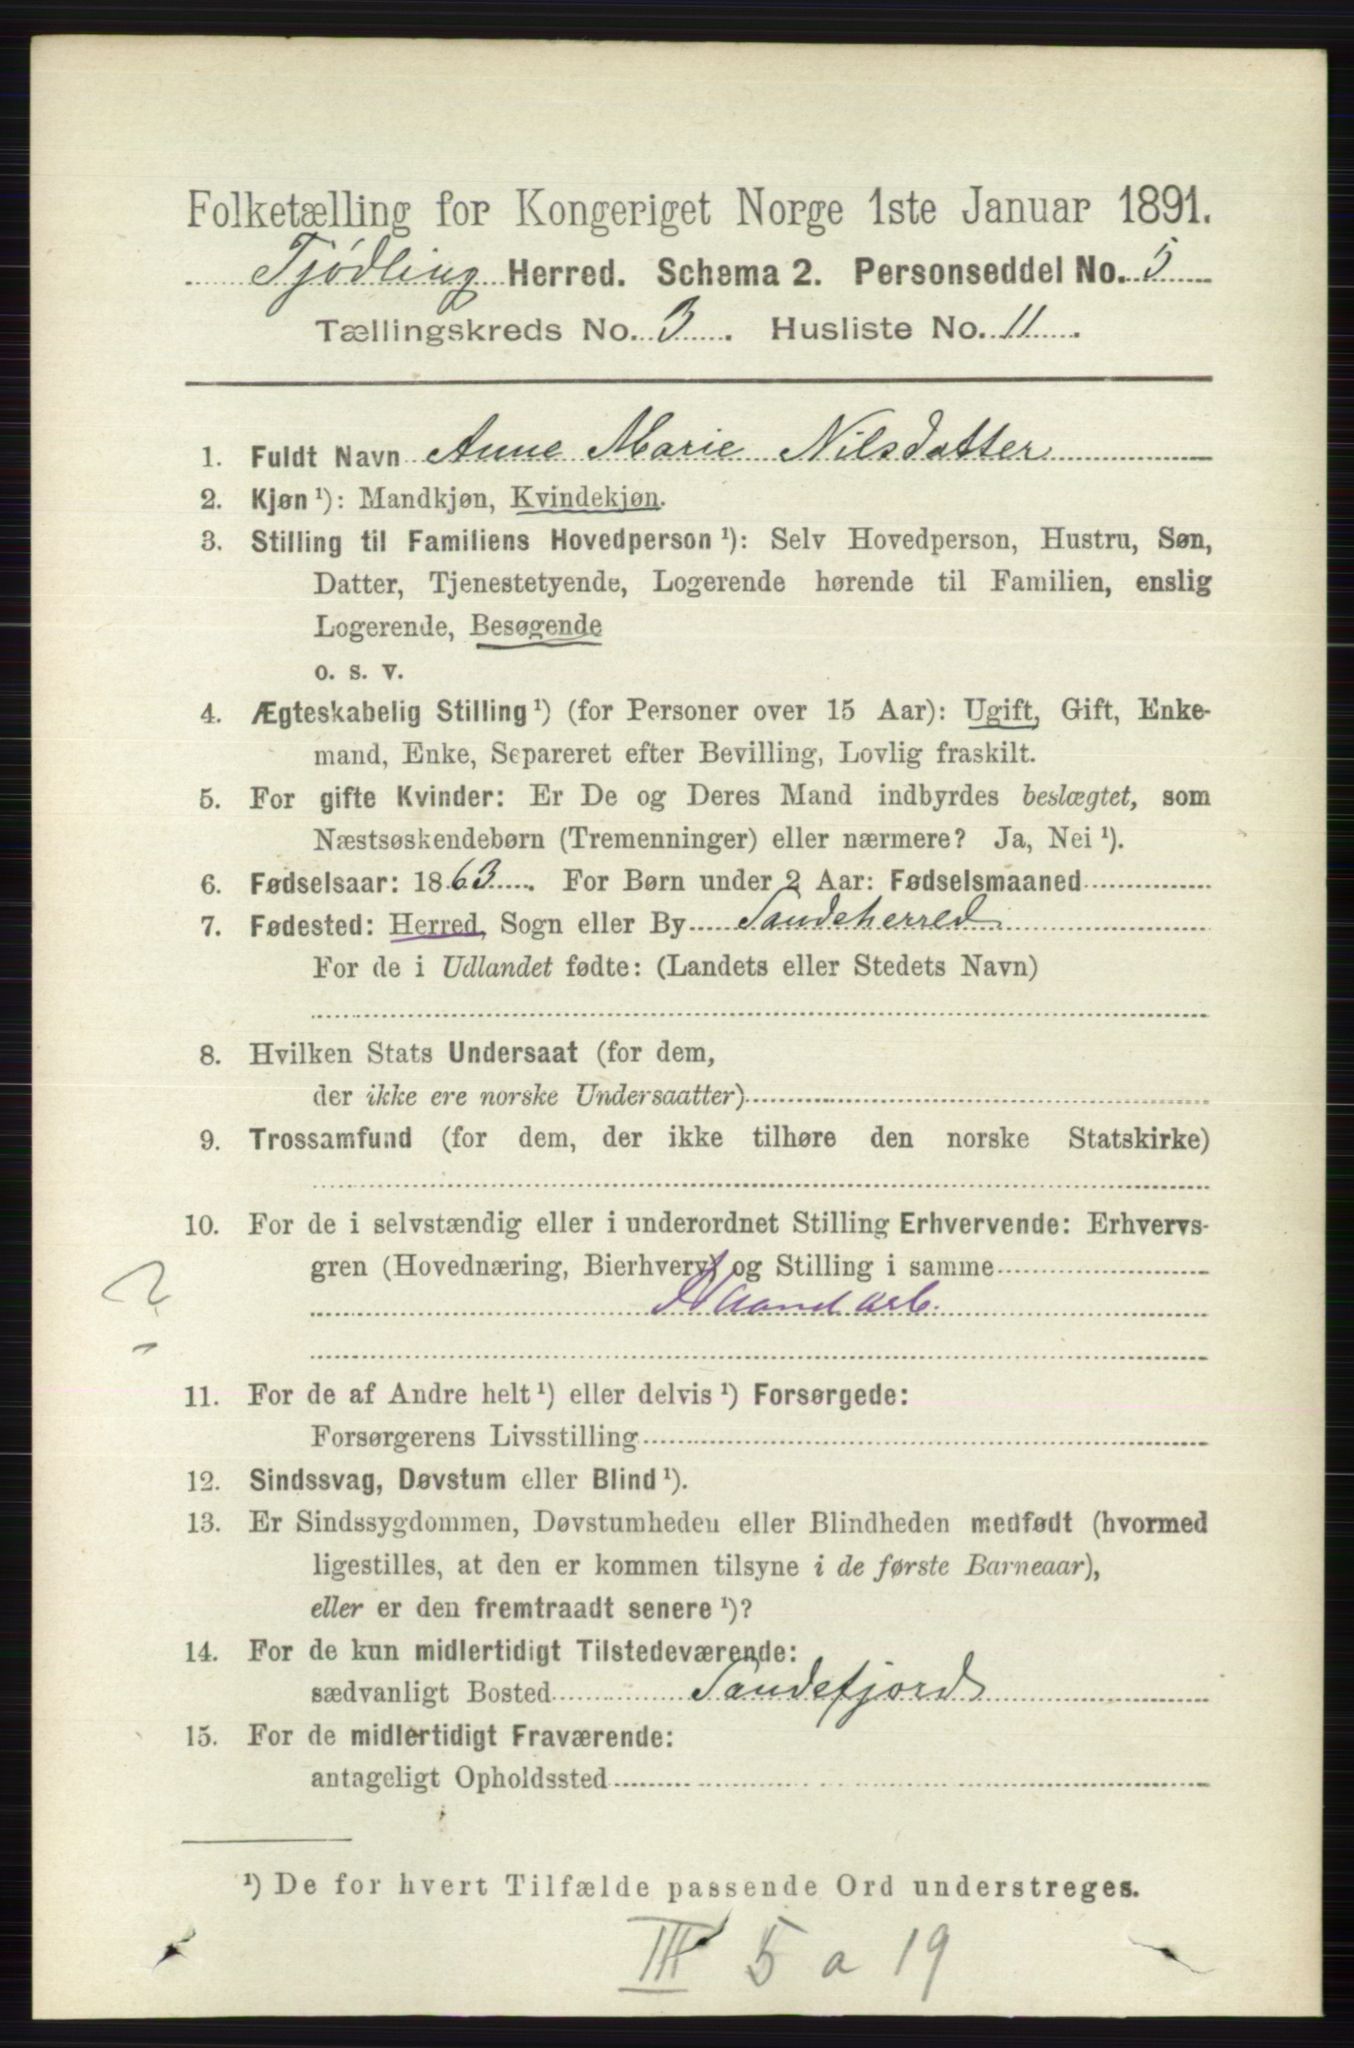 Folketælling for Kongeriget Norge 1ste Januar 1891.
Tjødling Herred. Schema 2. Personseddel No. 5
Tællingskreds No. 3. Husliste No. 11.
1. Fuldt Navn Anne Marie Nilsdatter
2. Kjøn ¹): Mandkjøn, Kvindekjøn.
3. Stilling til Familiens Hovedperson ¹): Selv Hovedperson, Hustru, Søn,
Datter, Tjenestetyende, Logerende hørende til Familien, enslig
Logerende, Besøgende
o. s. v.
4. Ægteskabelig Stilling ¹) (for Personer over 15 Aar): Ugift, Gift, Enke-
mand, Enke, Separeret efter Bevilling, Lovlig fraskilt.
5. For gifte Kvinder: Er De og Deres Mand indbyrdes beslægtet, som
Næstsøskendebørn (Tremenninger) eller nærmere? Ja, Nei ¹).
6. Fødselsaar: 1863. For Børn under 2 Aar: Fødselsmaaned
7. Fødested: Herred, Sogn eller By Sandeherred
For de i Udlandet fødte: (Landets eller Stedets Navn)
8. Hvilken Stats Undersaat (for dem,
der ikke ere norske Undersaatter)
9. Trossamfund (for dem, der ikke tilhøre den norske Statskirke)
10. For de i selvstændig eller i underordnet Stilling Erhvervende: Erhvervs-
gren (Hovednæring, Bierhverv) og Stilling i samme
? Haandarb.
11. For de af Andre helt ¹) eller delvis ¹) Forsørgede:
Forsørgerens Livsstilling
12. Sindssvag, Døvstum eller Blind ¹).
13. Er Sindssygdommen, Døvstumheden eller Blindheden medfødt (hvormed
ligestilles, at den er kommen tilsyne i de første Barneaar),
eller er den fremtraadt senere ¹)?
14. For de kun midlertidigt Tilstedeværende:
sædvanligt Bosted Sandefjord
15. For de midlertidigt Fraværende:
antageligt Opholdssted
¹) De for hvert Tilfælde passende Ord understreges.
III 5 a 19